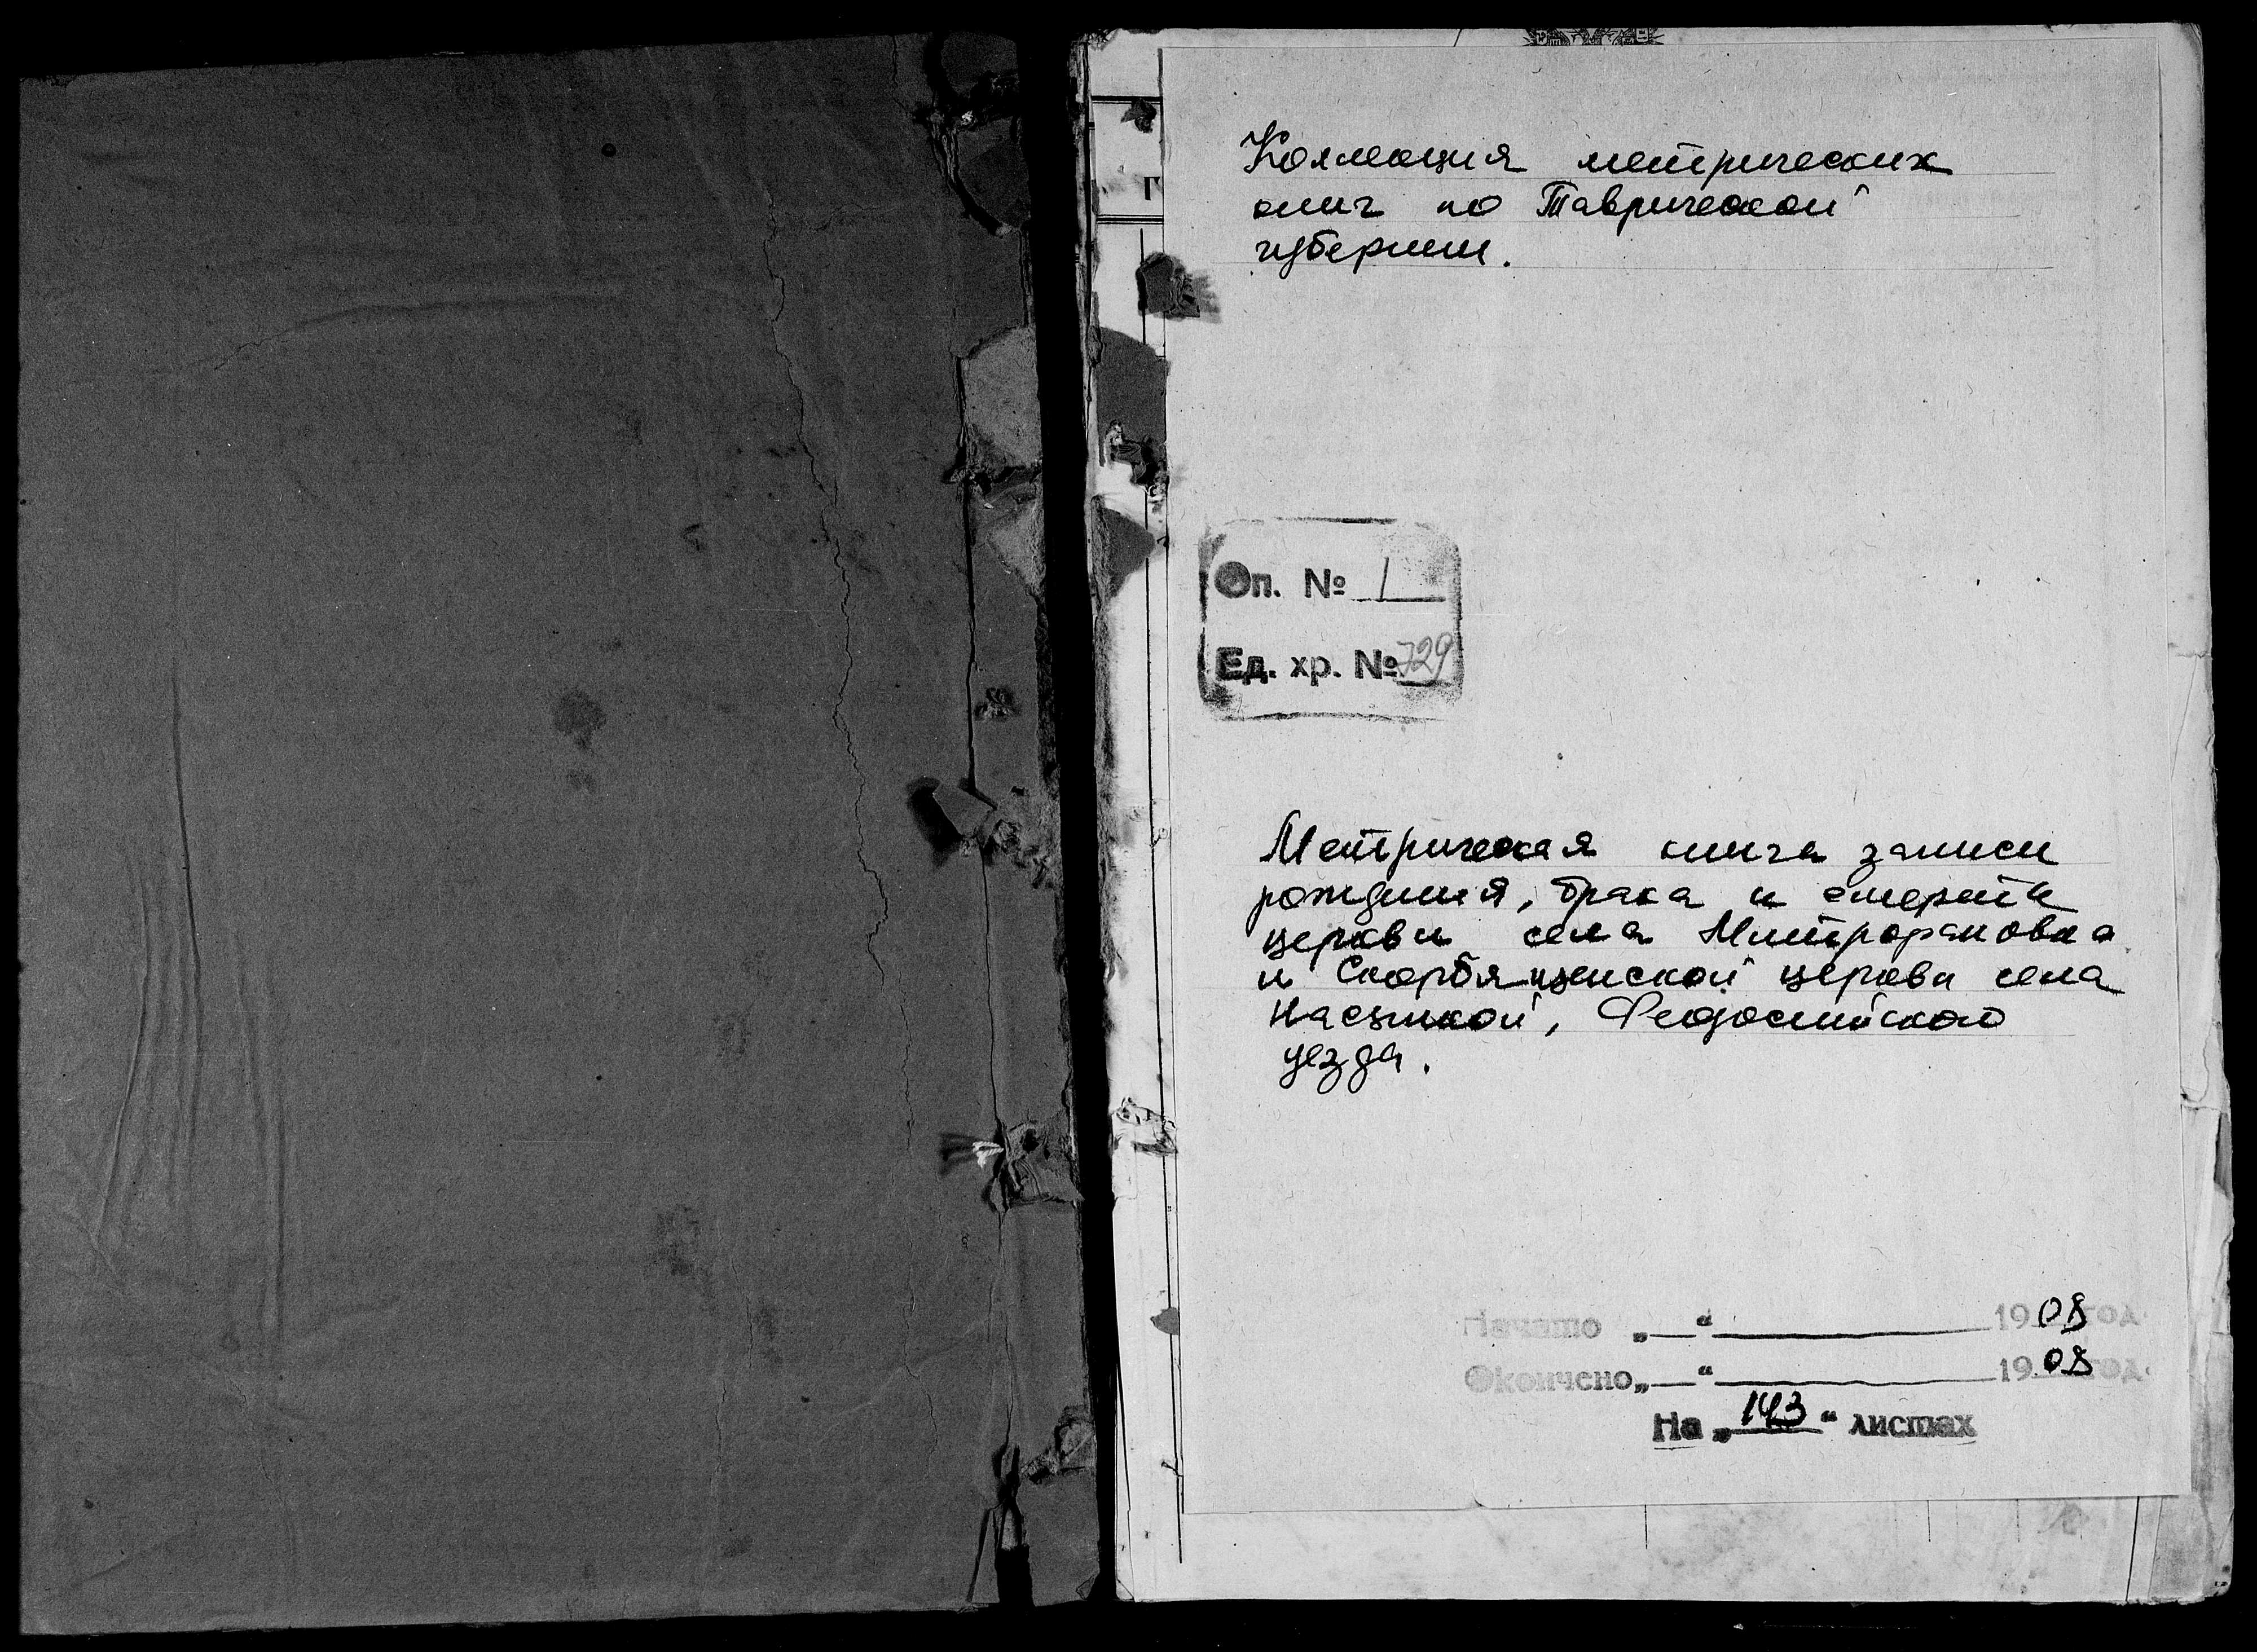 Коллекция метрических
книг по Таврической
губернии.
Оп. № 1
Ед. хр. № 729
Метрическая книга записи
рождения, брака и смерти
церкви села Митрофановка
и Скорбященской церкви села
Насыпкой, Феодосийского
уезда.
Начато „__“ 1908 год
Окончено „__“ 1908 год
На „143“ листах